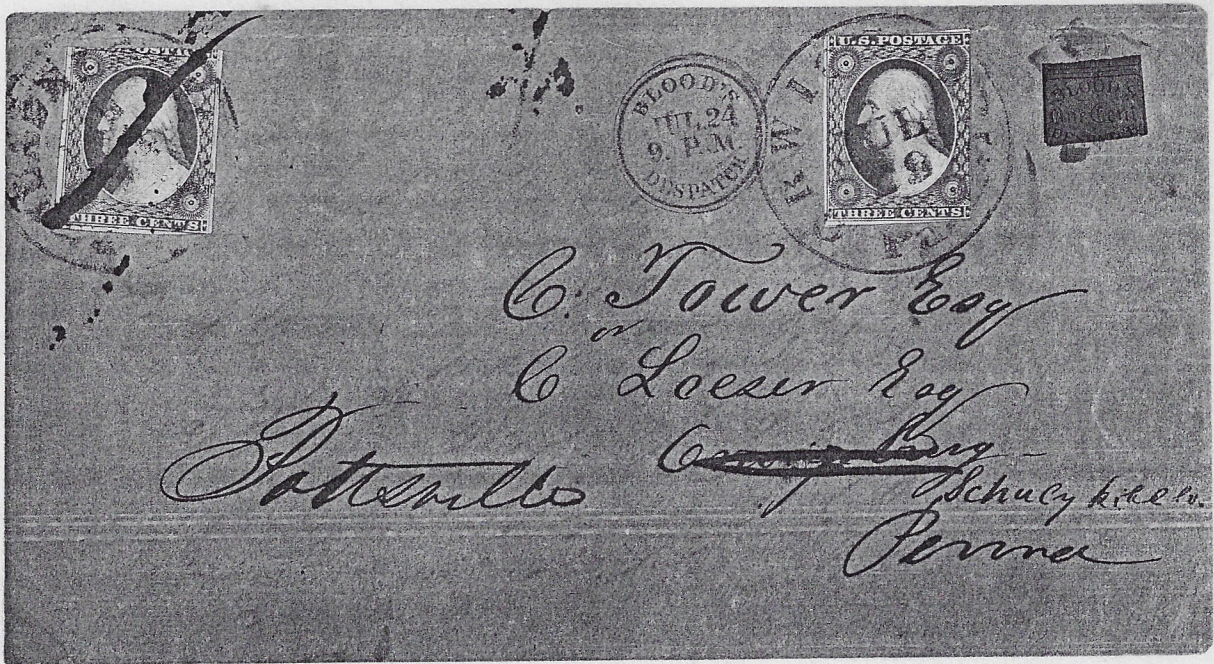 OSTAG
THREE CENTS
BLOOD'S
JUL. 24
9. P.M.
DESPATCH
U.S. POSTAGE
THREE CENTS
RWI
JUL
9
Pa
BLOOD'S
One Cent
C. Tower Esq
or
C Loeser Esq
Pottsville
Schuylkill Co.
Penna